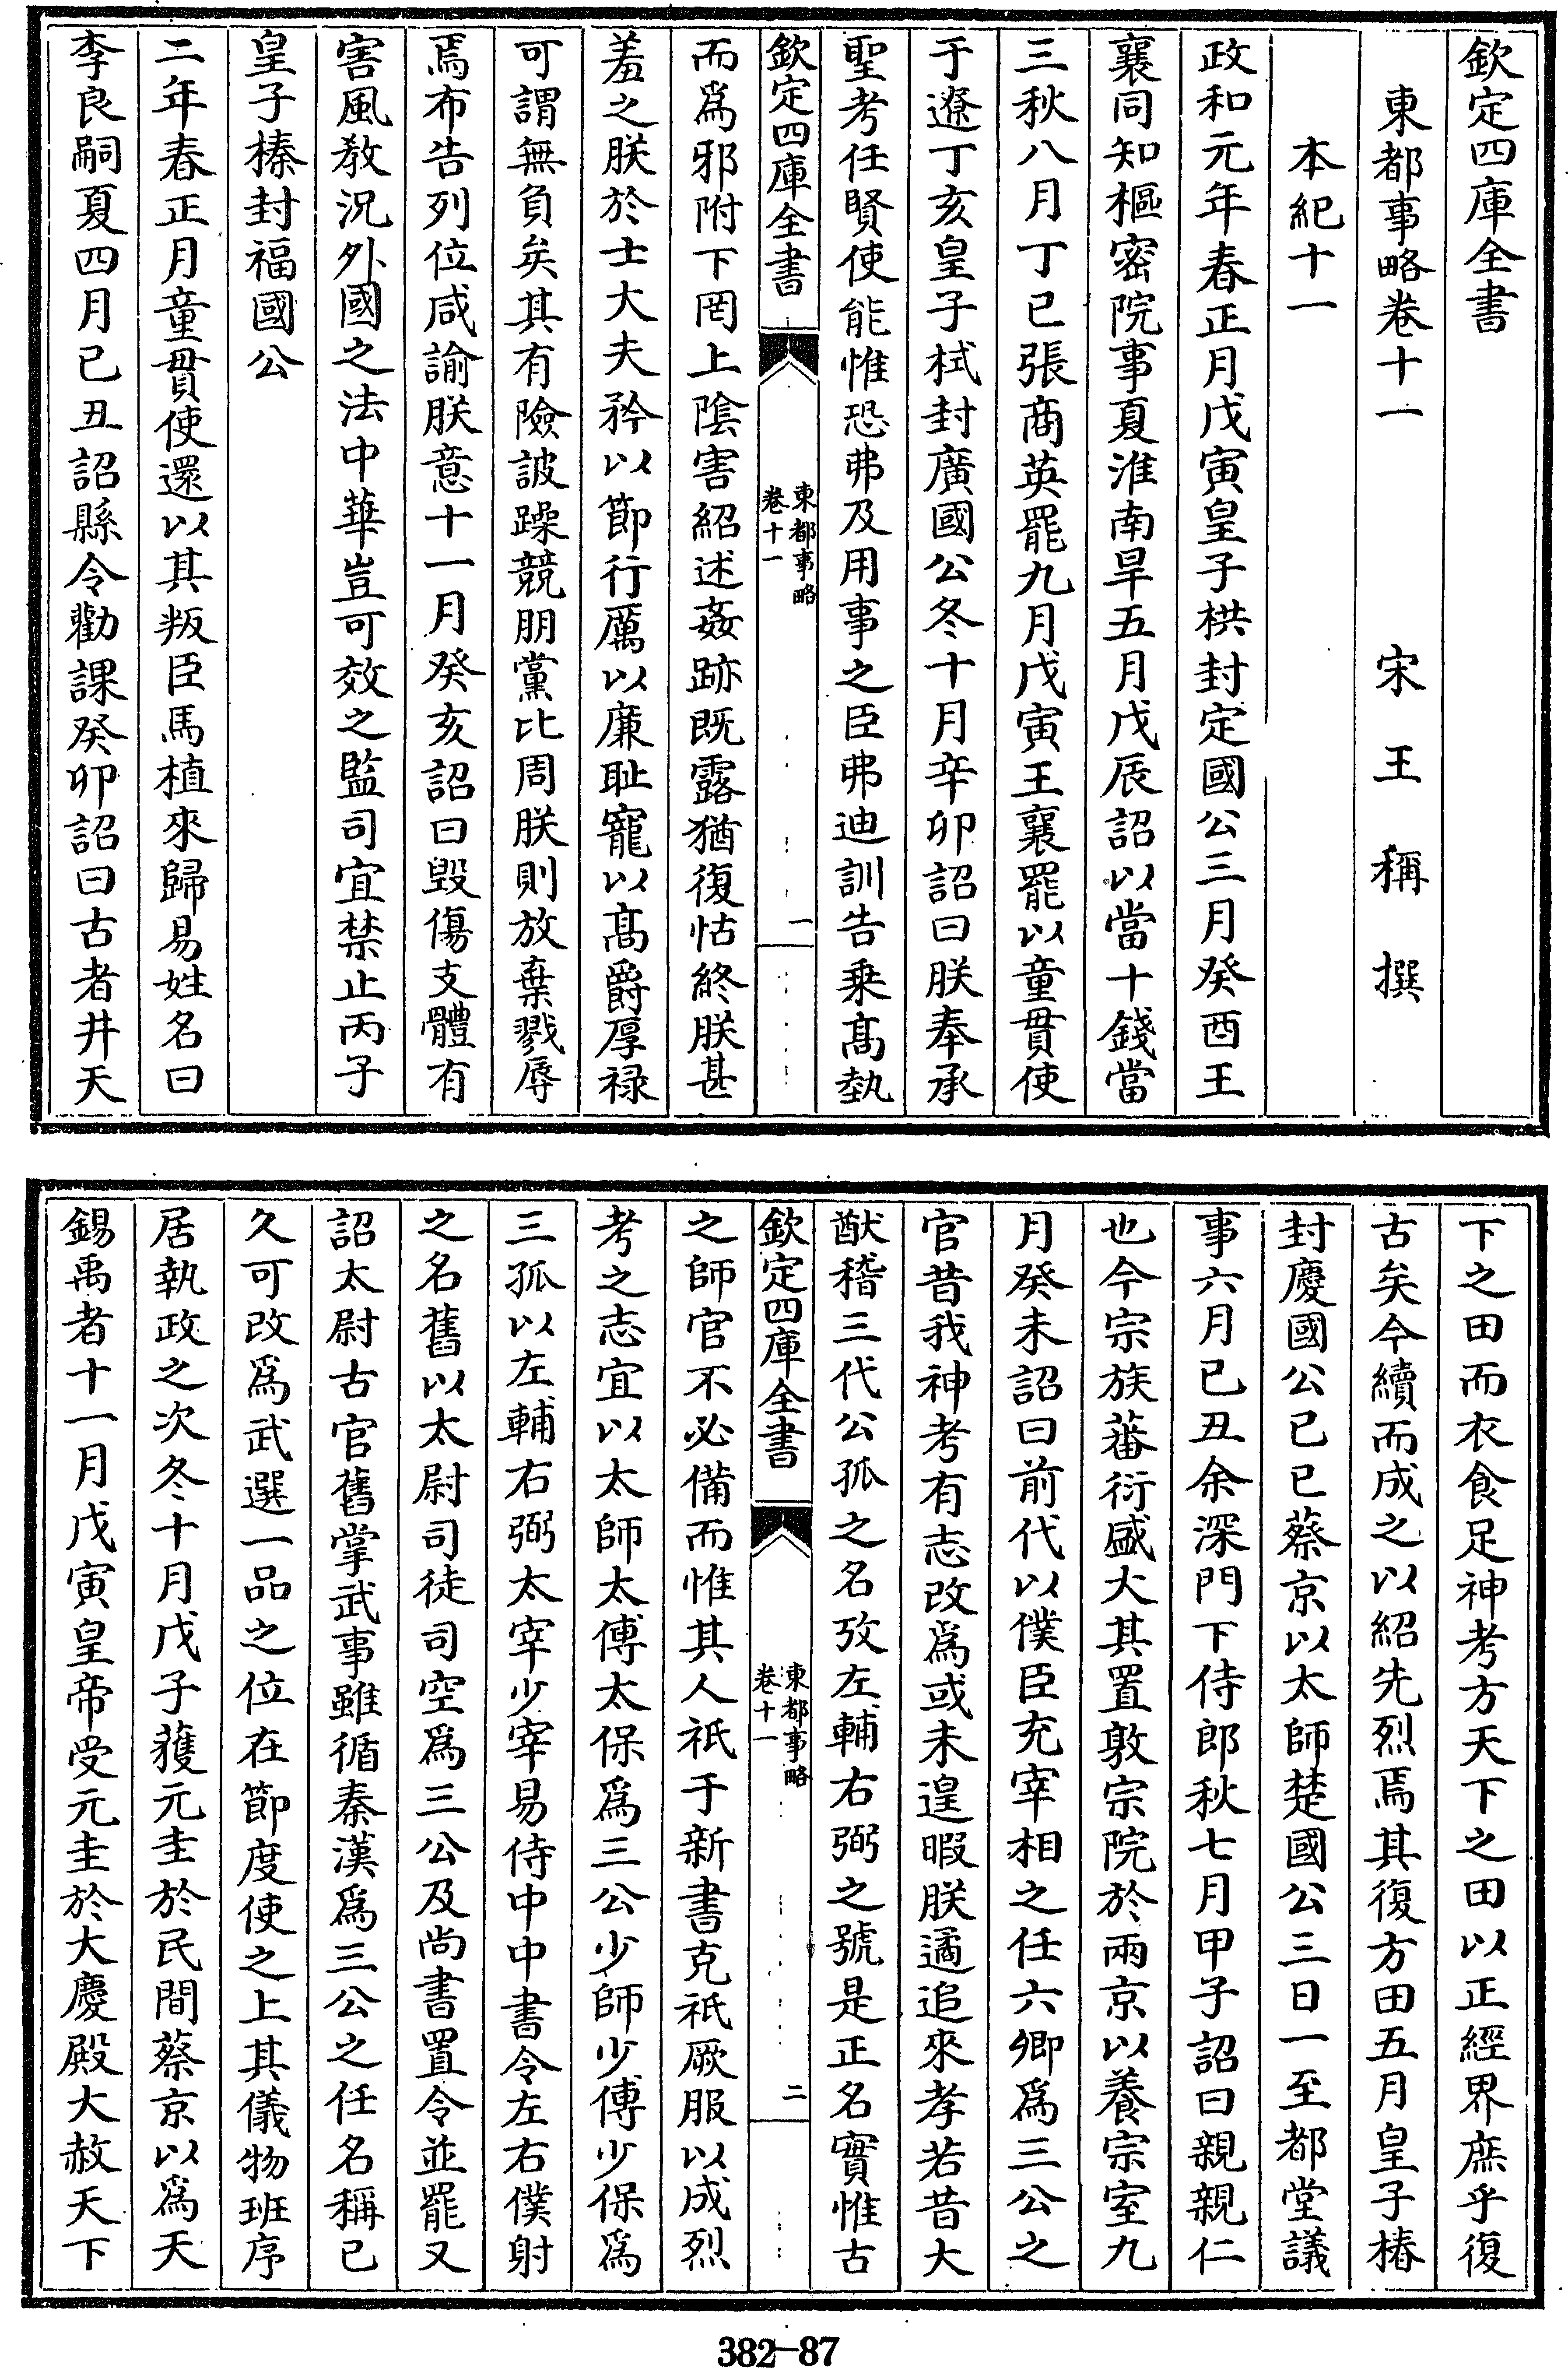 欽定四庫全書
東都事略卷十一
宋王稱撰
本紀十一
政和元年春正月戊寅皇子栱封定國公三月癸酉王
襄同知樞密院事夏淮南旱五月戊辰詔以當十錢當
三秋八月丁巳張商英罷九月戊寅王襄罷以童貫使
于遼丁亥皇子栻封廣國公冬十月辛卯詔曰朕奉承
聖考任賢使能惟恐弗及用事之臣弗迪訓告乗髙埶
欽定四庫全書
東都事略
卷十一
一
而為邪附下罔上陰害紹述姦跡既露猶復怙終朕甚
羞之朕於士大夫矜以節行厲以廉耻寵以髙爵厚禄
可謂無負矣其有險詖躁競朋黨比周朕則放棄戮辱
焉布告列位咸諭朕意十一月癸亥詔曰毀傷支體有
害風教況外國之法中華豈可效之監司宜禁止丙子
皇子榛封福國公
二年春正月童貫使還以其叛臣馬植來歸易姓名曰
李良嗣夏四月己丑詔縣令勸課癸卯詔曰古者井天
下之田而衣食足神考方天下之田以正經界庶乎復
古矣今續而成之以紹先烈焉其復方田五月皇子椿
封慶國公己巳蔡京以太師楚國公三日一至都堂議
事六月己丑余深門下侍郎秋七月甲子詔曰親親仁
也今宗族蕃衍盛大其置敦宗院於兩京以養宗室九
月癸未詔曰前代以僕臣充宰相之任六卿為三公之
官昔我神考有志改為或未遑暇朕遹追來孝若昔大
猷稽三代公孤之名攷左輔右弼之號是正名實惟古
欽定四庫全書
東都事略
卷十一
二
之師官不必備而惟其人祇于新書克祇厥服以成烈
考之志宜以太師太傅太保為三公少師少傅少保為
三孤以左輔右弼太宰少宰易侍中中書令左右僕射
之名舊以太尉司徒司空為三公及尚書置令並罷又
詔太尉古官舊掌武事雖循秦漢為三公之任名稱已
久可改為武選一品之位在節度使之上其儀物班序
居執政之次冬十月戊子獲元圭於民間蔡京以為天
錫禹者十一月戊寅皇帝受元圭於大慶殿大赦天下
382-87